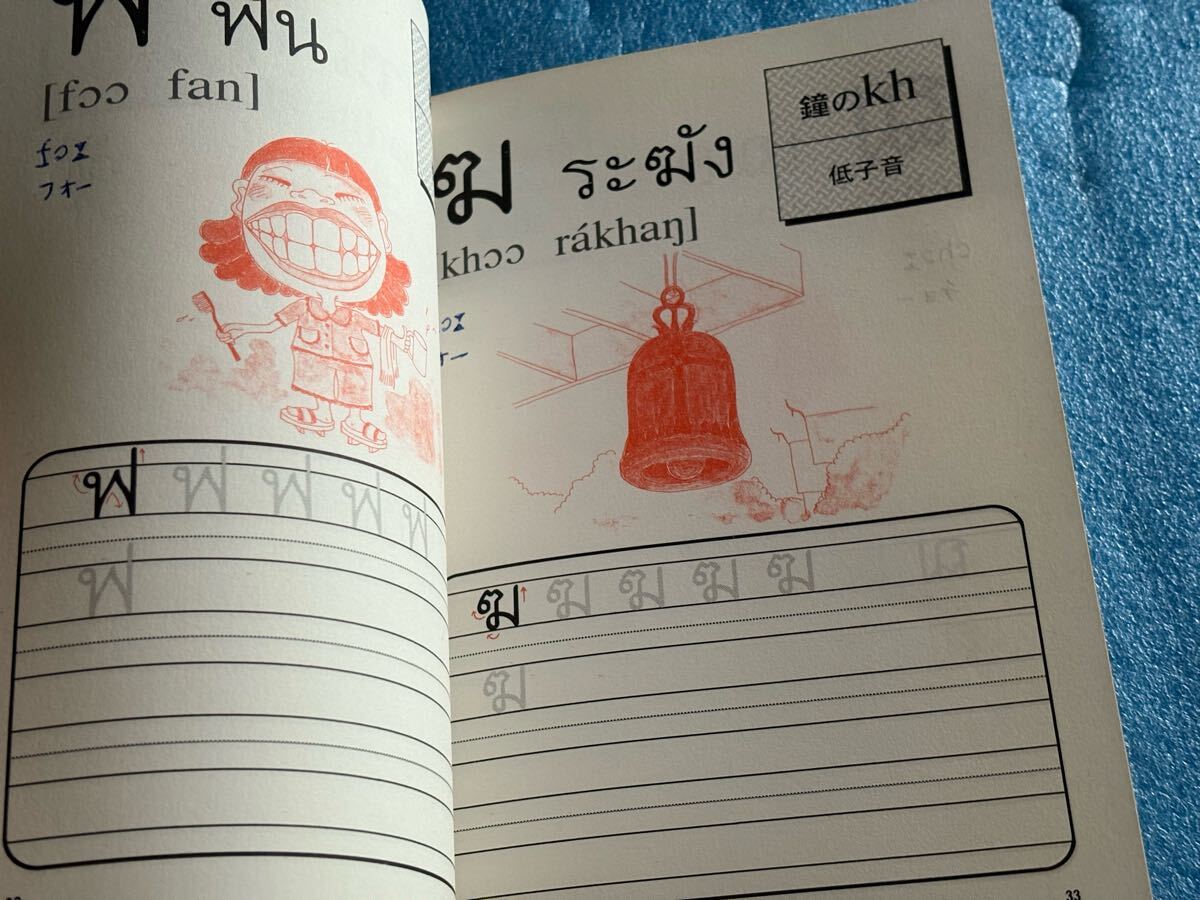 ฟ ฟัน
[fɔɔ fan]
fɔː
フォー
ฟ ฟ ฟ ฟ ฟ
ฟ
鐘のkh
低子音
ฆ ระฆัง
khɔɔ rákhaŋ]
ɔː
ォー
ฆ ฆ ฆ ฆ ฆ
ฆ
33